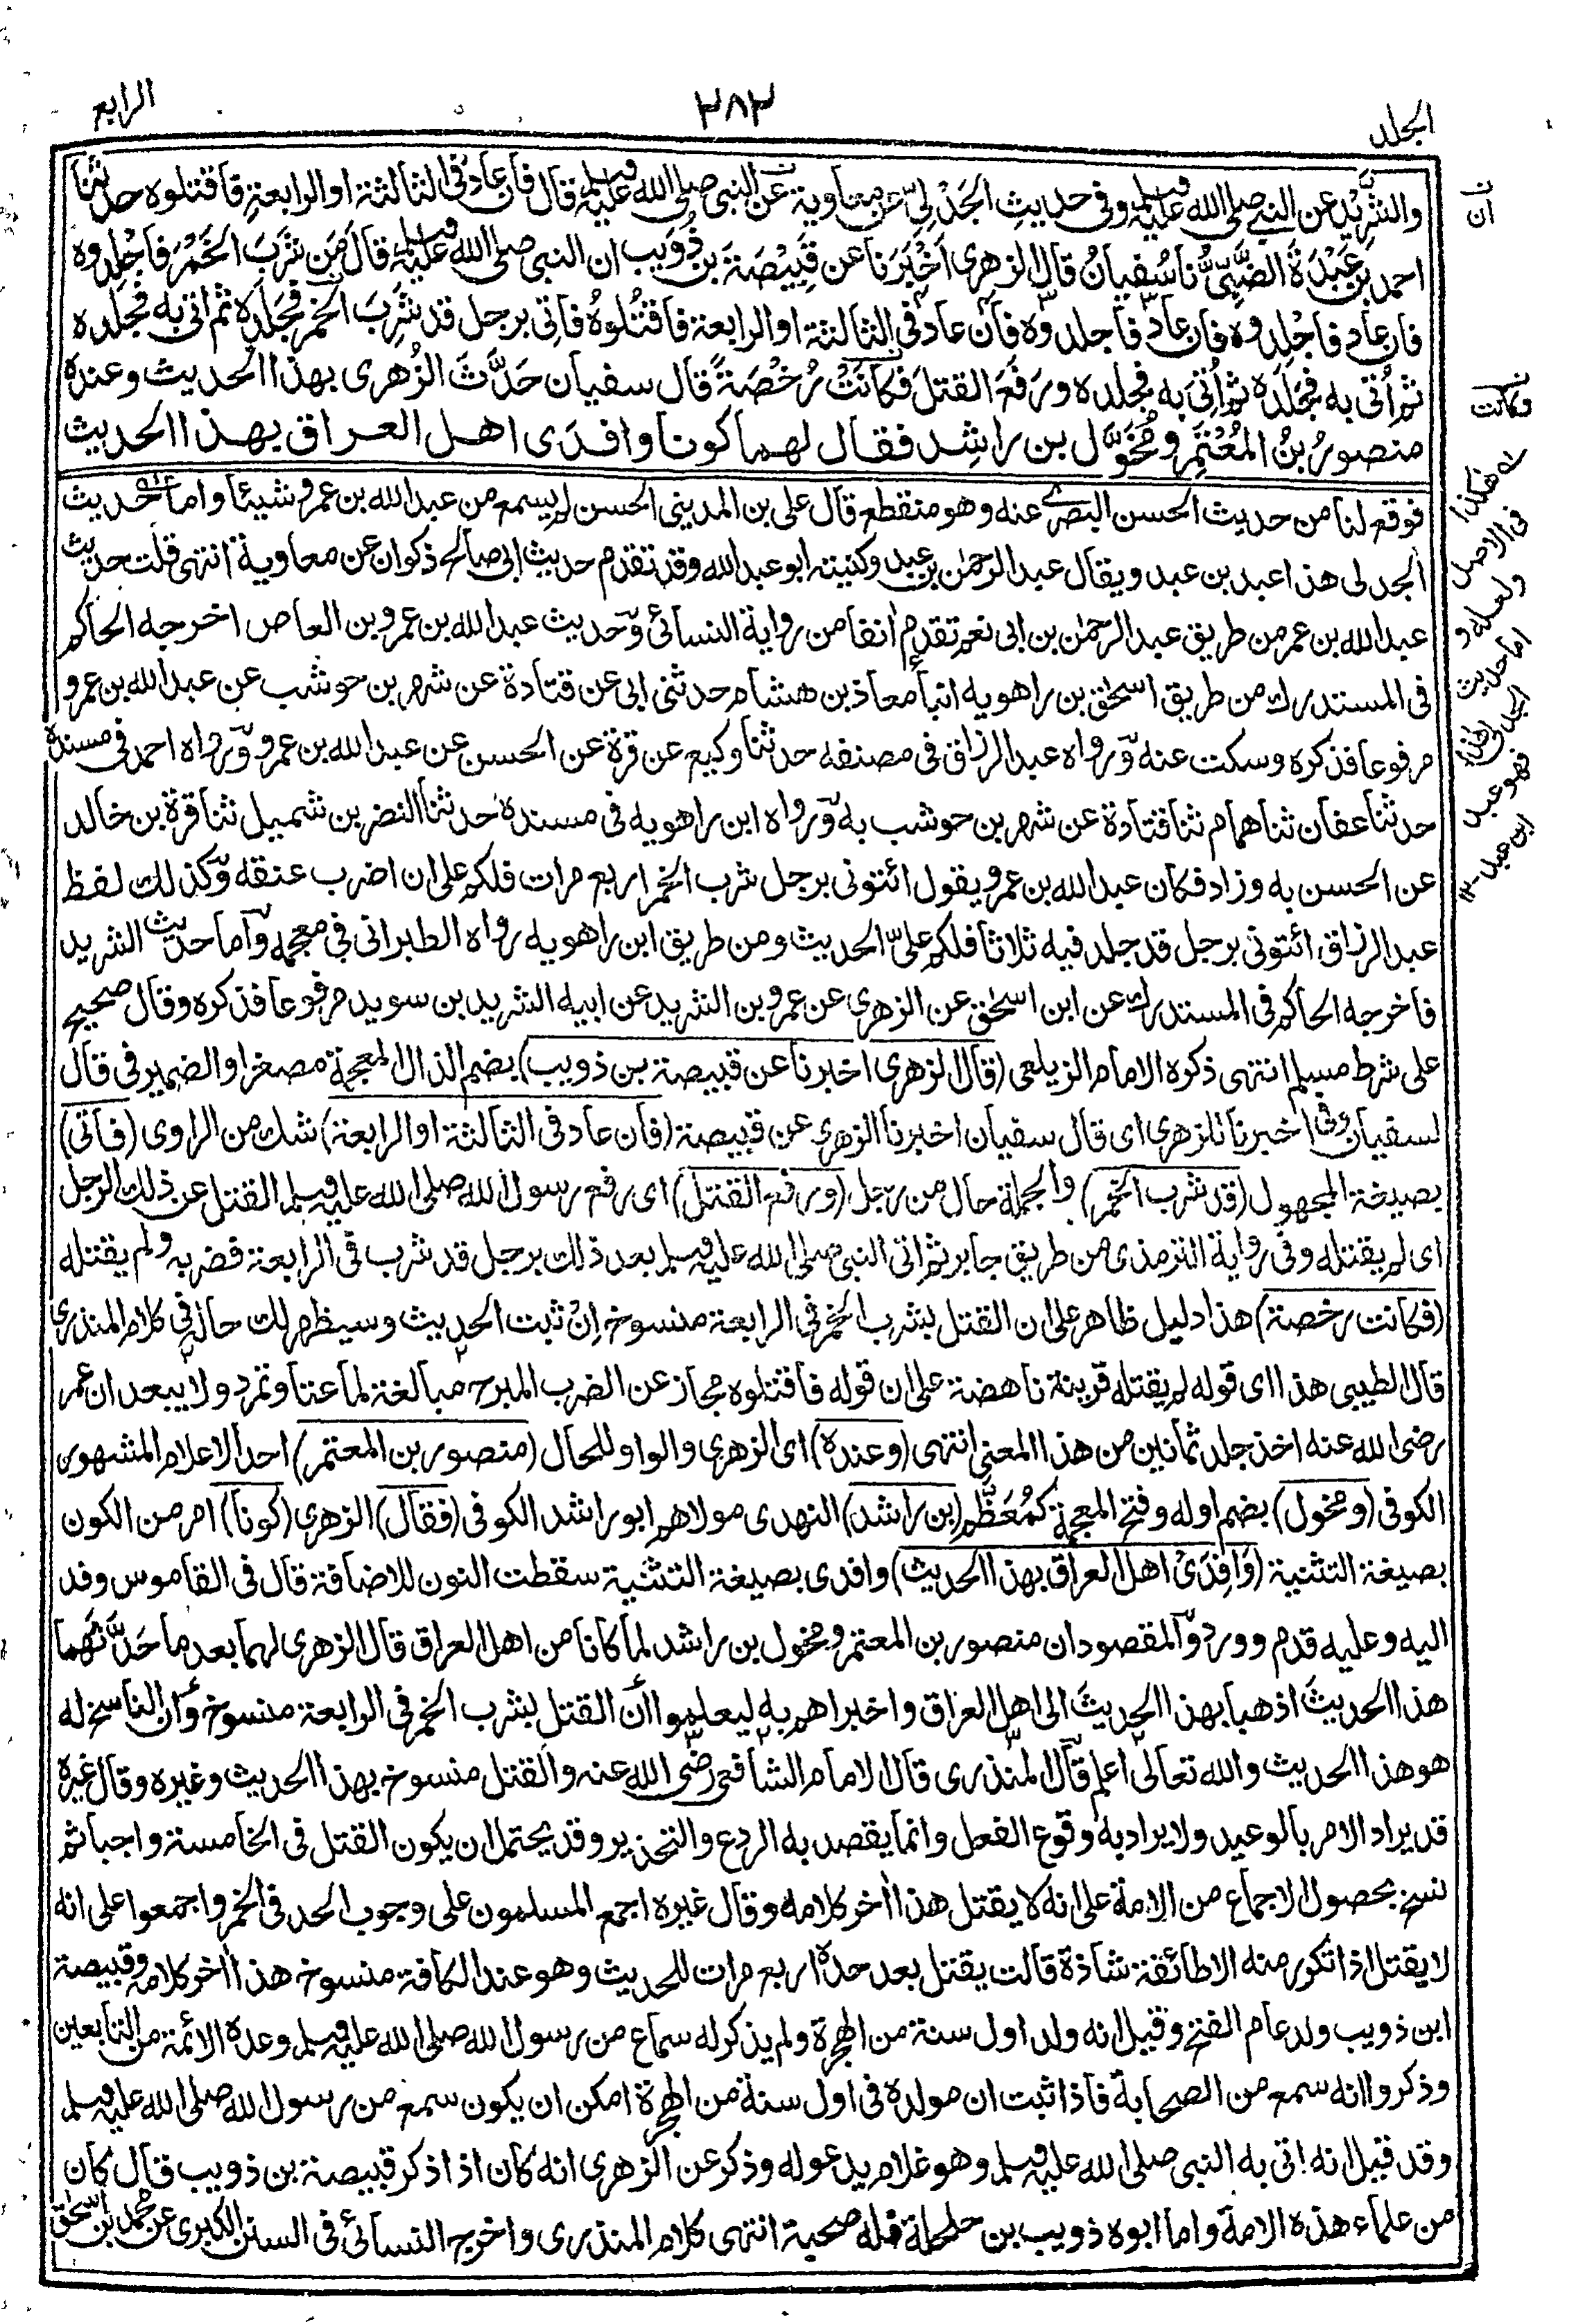 الجلد
٢٨٣
الرابع
والشريد عن النبي صلى الله عليه وسلم وفى حديث الجَدَلِيِّ عن معاوية عن النبى صلى الله عليه وسلم قال فان عاد فى الثالثة او الرابعة فاقتلوه حدثنا
احمد بن عَبْدَةَ الضَّبِّيُّ نا سُفيانُ قال الزهرى اَخْبَرَنا عن قَبِيْصَةَ بن ذُوَيب ان النبى صلى الله عليه وسلم قال مَن شَرِبَ الخَمْرَ فاجْلِدوه
فان عاد فاجْلِدوه فان عاد فاجلدوه فان عاد فى الثالثة او الرابعة فاقتُلوهُ فاتى برجل قد شَرِبَ الخمر فجَلَدَه ثم اتى به فجلده
ثم اُتى به فجَلَدَه ثم اُتِىَ به فجلده ورَفَعَ القتلَ فكانَتْ رُخْصَةً قال سفيان حَدَّثَ الزُهرى بهذا الحديث وعنده
منصورُ بنُ المُعْتَمِرِ ومُخَوَّل بن راشد فقال لهما كونا وافدَى اهل العراق بهذا الحديث
فوقع لنا من حديث الحسن البصرى عنه وهو منقطع قال على بن المدينى الحسن لم يسمع من عبد الله بن عمرو شيئا واما حديث
الجدلى هذا عبد بن عبد ويقال عبد الرحمٰن بن عبد وكنيته ابو عبد الله وقد تقدم حديث ابى صالح ذكوان عن معاوية انتهى قلت حديث
عبد الله بن عمر من طريق عبد الرحمٰن بن ابى نعم تقدم انفا من رواية النسائى وحديث عبد الله بن عمرو بن العاص اخرجه الحاكم
فى المستدرك من طريق اسحٰق بن راهويه انبأ معاذ بن هشام حدثنى ابى عن قتادة عن شهر بن حوشب عن عبد الله بن عمرو
مرفوعا فذكره وسكت عنه ورواه عبد الرزاق فى مصنفه حدثنا وكيع عن قرة عن الحسن عن عبد الله بن عمرو ورواه احمد فى مسنده
حدثنا عفان ثنا همام ثنا قتادة عن شهر بن حوشب به ورواه ابن راهويه فى مسنده حدثنا النضر بن شميل ثنا قرة بن خالد
عن الحسن به وزاد فكان عبد الله بن عمرو يقول ائتونى برجل شرب الخمر اربع مرات فلكم على ان اضرب عنقه وكذلك لفظ
عبد الرزاق ائتونى برجل قد جلد فيه ثلاثا فلكم علىّ الحديث ومن طريق ابن راهويه رواه الطبرانى فى معجمه واما حديث الشريد
فاخرجه الحاكم فى المستدرك عن ابن اسحٰق عن الزهرى عن عمرو بن الشريد عن ابيه الشريد بن سويد مرفوعا فذكره وقال صحيح
على شرط مسلم انتهى ذكره الامام الزيلعى (قال الزهرى اخبرنا عن قبيصة بن ذويب) بضم الذال المعجمة مصغرا والضمير فى قال
لسفيان وفى اخبرنا للزهرى اى قال سفيان اخبرنا الزهرى عن قبيصة (فان عاد فى الثالثة او الرابعة) شك من الراوى (فاتى)
بصيغة المجهول (قد شرب الخمر) والجملة حال من رجل (ورفع القتل) اى رفع رسول الله صلى الله عليه وسلم القتل عن ذلك الرجل
اى لم يقتله وفى رواية الترمذى من طريق جابر ثم اتى النبى صلى الله عليه وسلم بعد ذلك برجل قد شرب فى الرابعة فضربه ولم يقتله
(فكانت رخصة) هذا دليل ظاهر على ان القتل بشرب الخمر فى الرابعة منسوخ اِنْ ثبت الحديث وسيظهر لك حاله فى كلام المنذرى
قال الطيبى هذا اى قوله لم يقتله قرينة ناهضة على ان قوله فاقتلوه مجاز عن الضرب المبرح مبالغة لما عتا وتمرد ولا يبعد ان عمر
رضى الله عنه اخذ جلد ثمانين من هذا المعنى انتهى (وعنده) اى الزهرى والواو للحال (منصور بن المعتمر) احد الاعلام المشهور
الكوفى (ومخول) بضم اوله وفتح المعجمة كمُعَظَّم (بن راشد) النهدى مولاهم ابو راشد الكوفى (فقال) الزهرى (كونا) امر من الكون
بصيغة التثنية (وَافِدَىْ اهل العراق بهذا الحديث) وافدى بصيغة التثنية سقطت النون للاضافة قال فى القاموس وفد
اليه وعليه قدم وورد والمقصود ان منصور بن المعتمر ومخول بن راشد لما كانا من اهل العراق قال الزهرى لهما بعد ما حَدَّثَهُما
هذا الحديثَ اذهبا بهذا الحديثَ الى اهل العراق واخبراهم به ليعلموا أن القتل بشرب الخمر فى الرابعة منسوخ وان الناسخ له
هو هذا الحديث والله تعالى اعلم قال المنذرى قال الامام الشافعى رضى الله عنه والقتل منسوخ بهذا الحديث وغيره وقال غيره
قد يراد الامر بالوعيد ولا يراد به وقوع الفعل وانما يقصد به الردع والتحذير وقد يحتمل ان يكون القتل فى الخامسة واجبا ثم
نسخ بحصول الاجماع من الامة على انه لا يقتل هذا اٰخر كلامه وقال غيره اجمع المسلمون على وجوب الحد فى الخمر واجمعوا على انه
لا يقتل اذا تكرر منه الا طائفة شاذة قالت يقتل بعد حده اربع مرات للحديث وهو عند الكافة منسوخ هذا اٰخر كلامه وقبيصة
ابن ذويب ولد عام الفتح وقيل انه ولد اول سنة من الهجرة ولم يذكر له سماع من رسول الله صلى الله عليه وسلم وعده الائمة من التابعين
وذكروا انه سمع من الصحابة فاذا ثبت ان مولده فى اول سنة من الهجرة امكن ان يكون سمع من رسول الله صلى الله عليه وسلم
وقد قيل انه اتى به النبى صلى الله عليه وسلم وهو غلام يدعو له وذكر عن الزهرى انه كان اذا ذكر قبيصة بن ذويب قال كان
من علماء هذه الامة واما ابوه ذويب بن حلحلة فله صحبة انتهى كلام المنذرى واخرج النسائى فى السنن الكبرى عن محمد بن اسحٰق
ن
ان
ن
وكانت
له هكذا
فى الاصل
ولعله و
اما حديث
الجدلى هذا
فهو عبد
ابن عبد ١٢